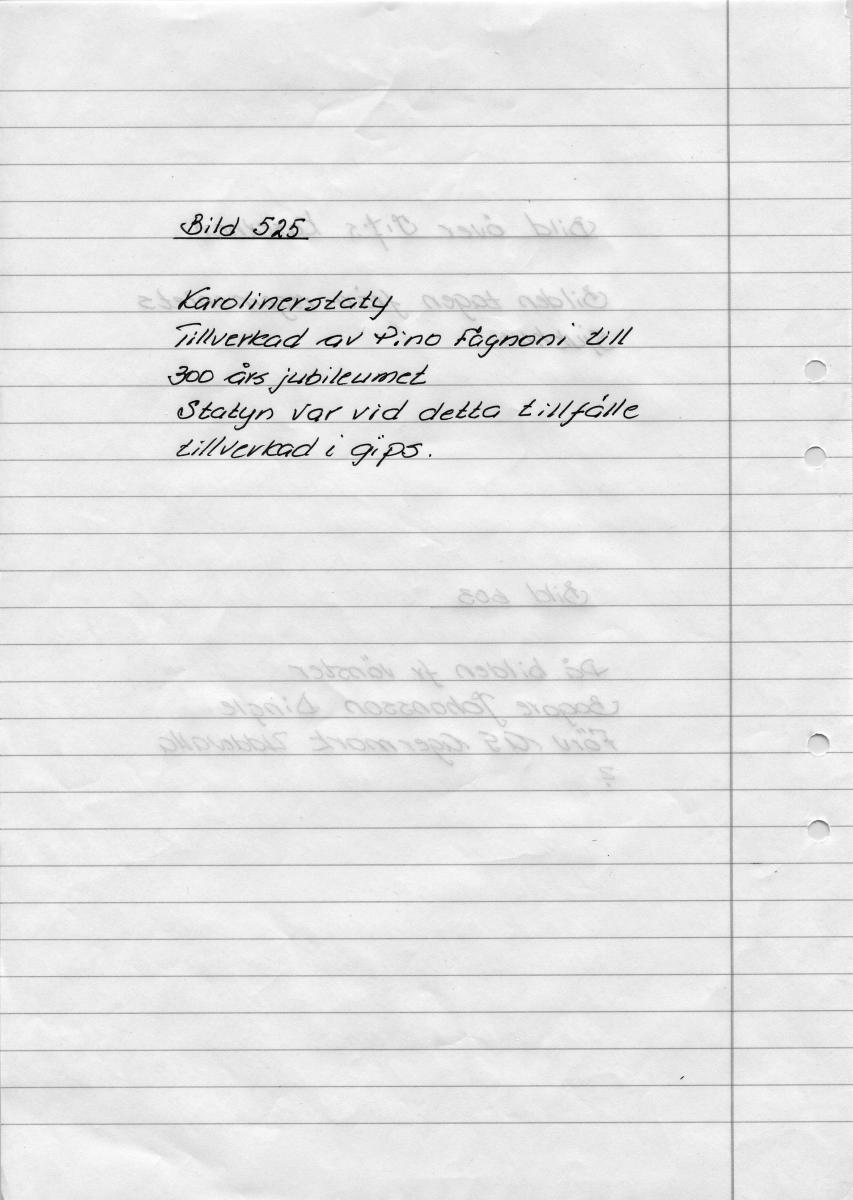 Bild 525
Karolinerstaty
Tillverkad av Pino Fagnoni till
300 års jubileumet
Statyn var vid detta tillfälle
tillverkad i gips.